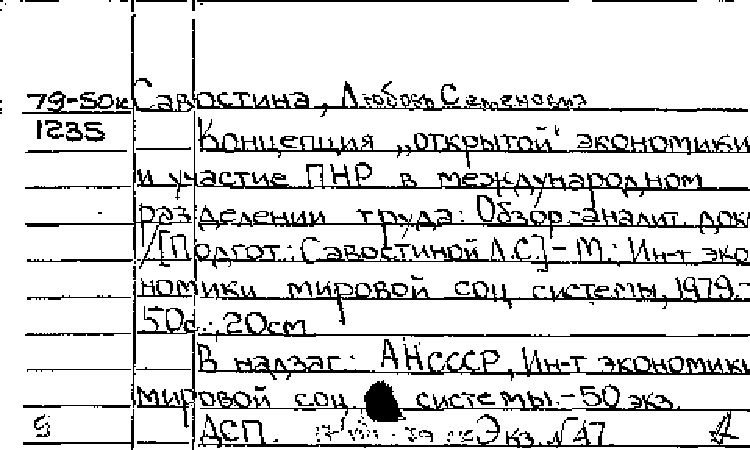 79-50к Савостина, Любовь Семеновна
1235 Концепция „открытой" экономики
и участие ПНР в международном
разделении труда: Обзор.-аналит. докл
/[Подгот.: Савостиной Л.С.] – М.: Ин-т эко
номики мировой соц системы, 1979.-
50с.; 20см
В надзаг: АН СССР, Ин-т экономики
мировой соц системы. – 50 экз.
ДСП. Экз. №47